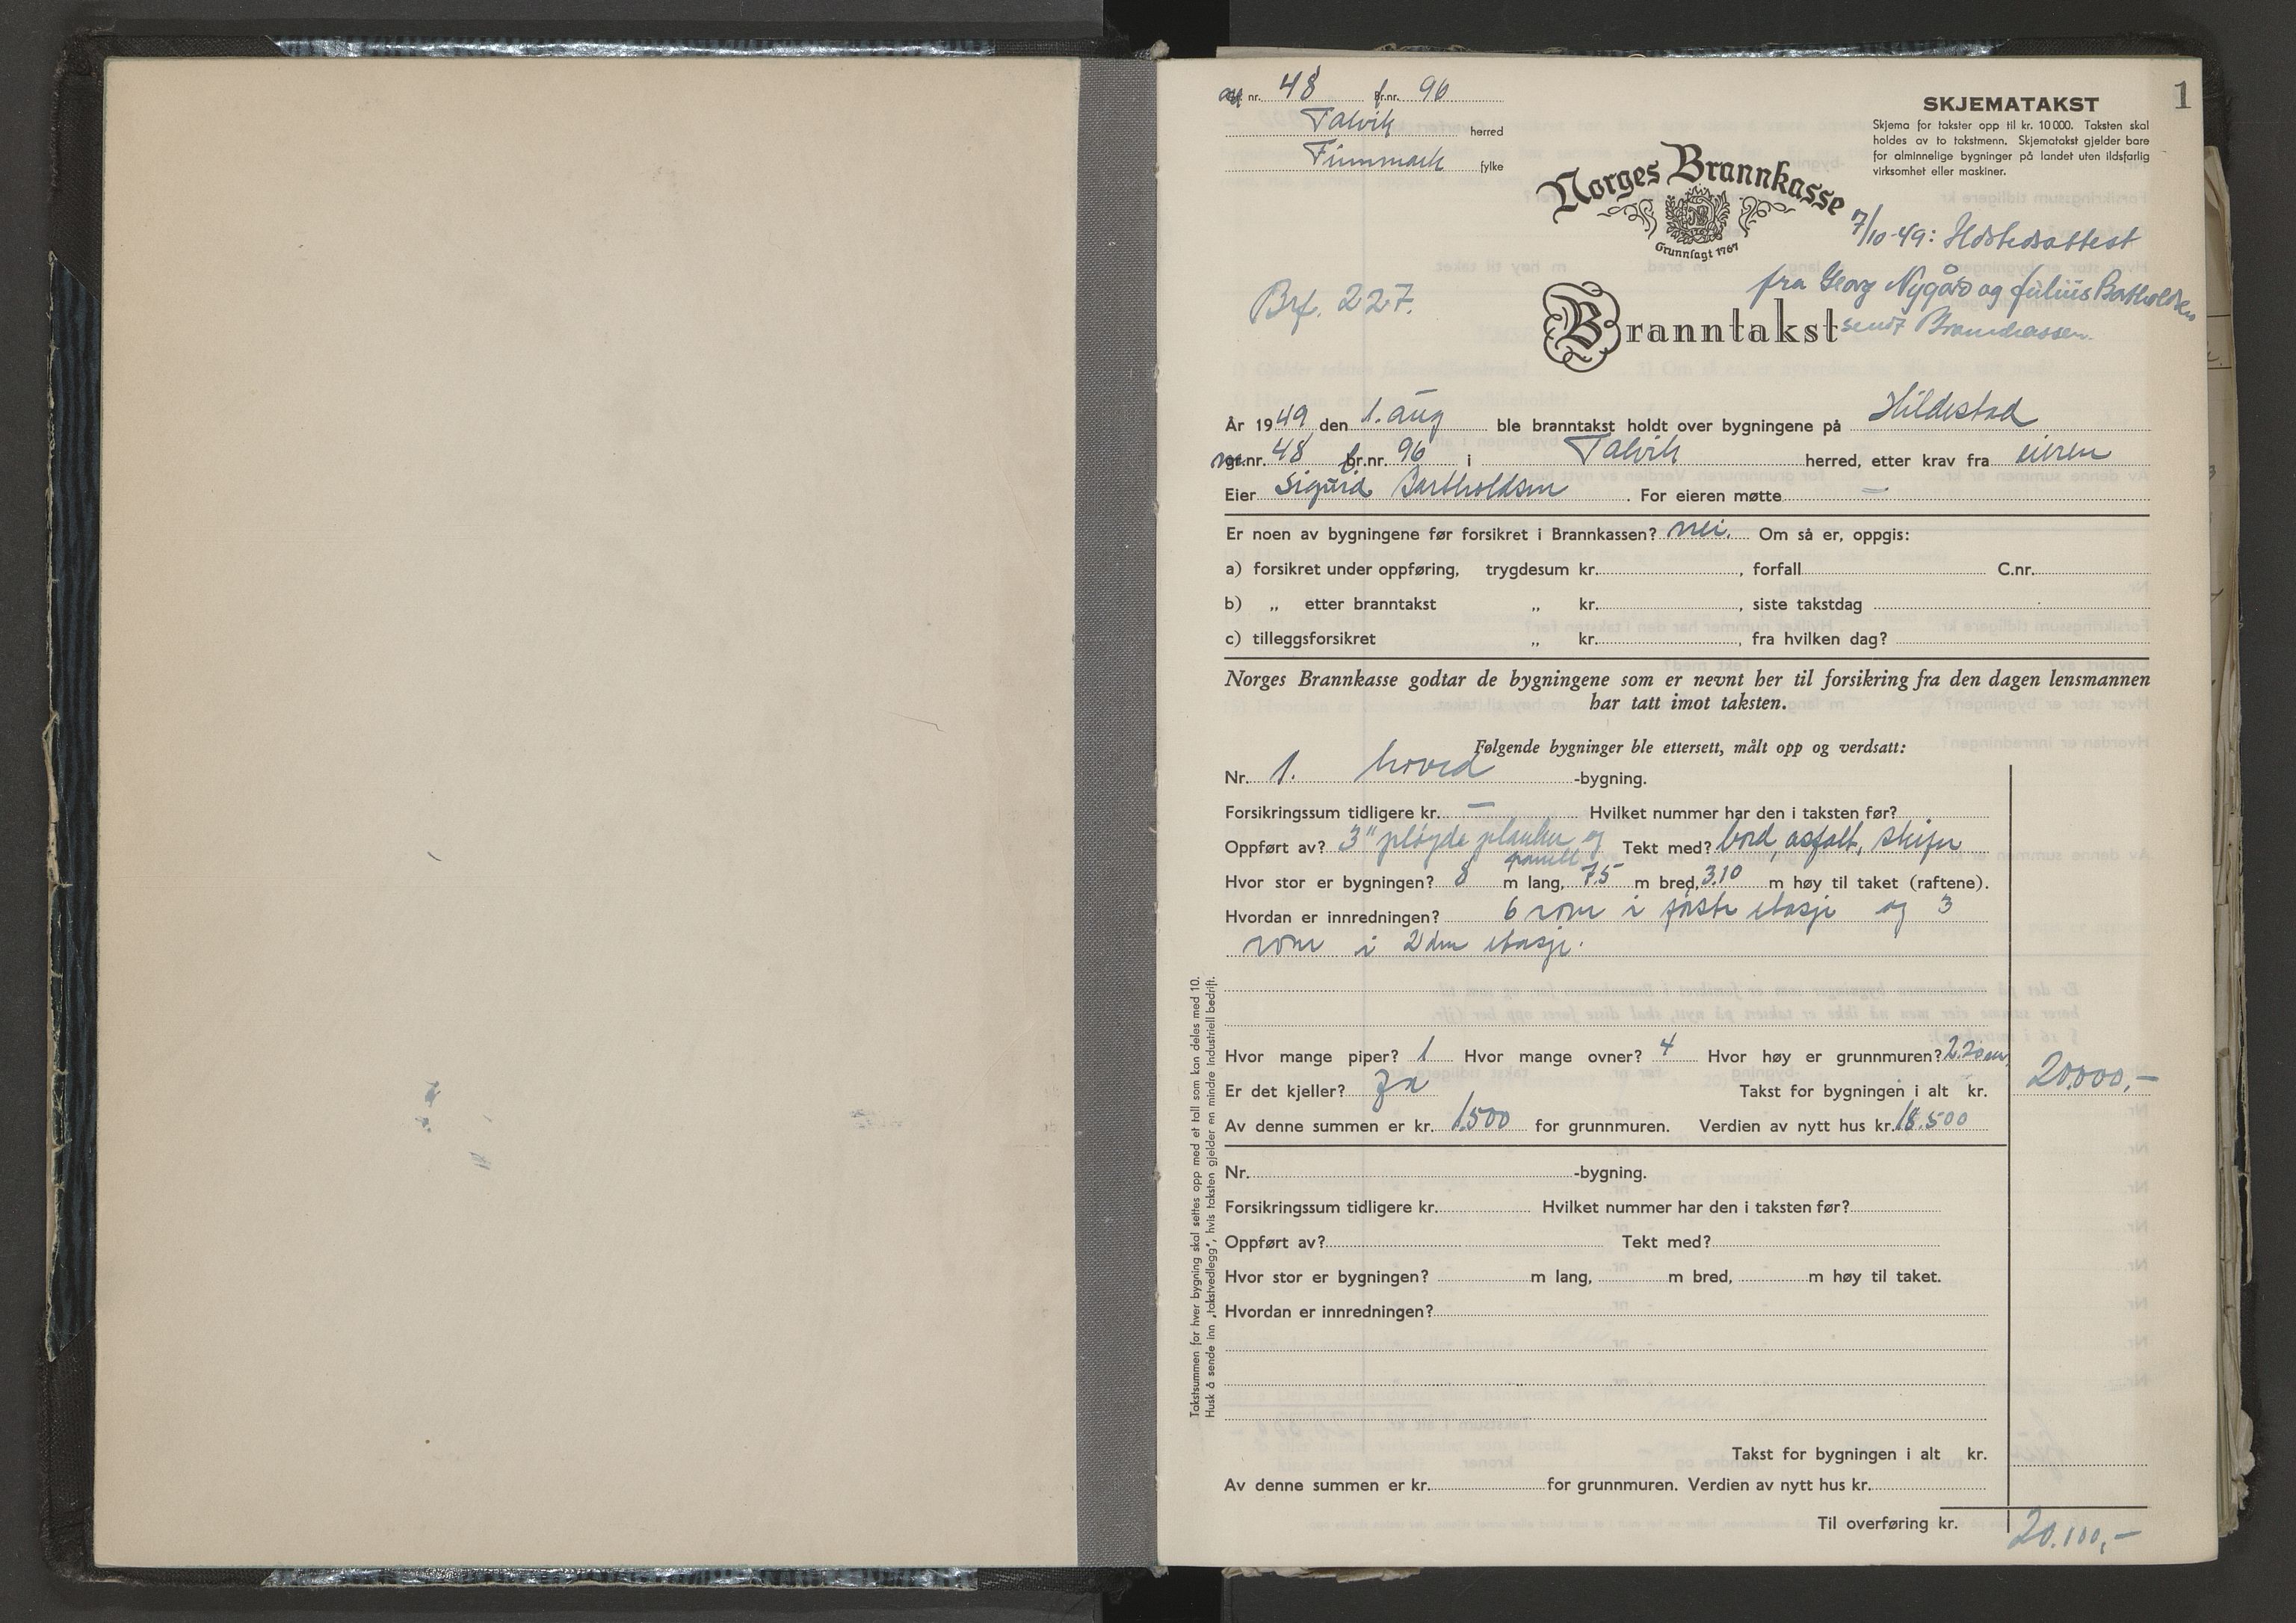 1
nr. 48 Br.nr. 96
Talvik herred
Finnmark fylke
SKJEMATAKST
Skjema for takster opp til kr. 10 000. Taksten skal
holdes av to takstmenn. Skjematakst gjelder bare
for alminnelige bygninger på landet uten ildsfarlig
virksomhet eller maskiner.
Norges Brannkasse
Grunnlagt 1767
7/10-49: Ildstedsattest
fra Georg Nygård og Julius Bartholdsen
sendt Brannkassen.
Brf. 227.
Branntakst
År 1949 den 1. aug ble branntakst holdt over bygningene på Hildestad
gr.nr. 48 br.nr. 96 i Talvik herred, etter krav fra eieren
Eier Sigurd Bartholdsen. For eieren møtte —
Er noen av bygningene før forsikret i Brannkassen? nei. Om så er, oppgis:
a) forsikret under oppføring, trygdesum kr. , forfall C.nr.
b) „ etter branntakst „ kr. , siste takstdag
c) tilleggsforsikret „ kr. , fra hvilken dag?
Norges Brannkasse godtar de bygningene som er nevnt her til forsikring fra den dagen lensmannen
har tatt imot taksten.
Følgende bygninger ble ettersett, målt opp og verdsatt:
Nr. 1. hoved -bygning.
Forsikringssum tidligere kr. — Hvilket nummer har den i taksten før?
Oppført av? 3" pløyde planker og panell Tekt med? bord, asfalt, skifer
Hvor stor er bygningen? 8 m lang, 7.5 m bred, 3.10 m høy til taket (raftene).
Hvordan er innredningen? 6 rom i første etasje og 3
rom i 2den etasje.
Hvor mange piper? 1 Hvor mange ovner? 4 Hvor høy er grunnmuren? 2.20 m
Er det kjeller? Ja Takst for bygningen i alt kr. 20.000,-
Av denne summen er kr. 1.500 for grunnmuren. Verdien av nytt hus kr. 18.500
Nr. -bygning.
Forsikringssum tidligere kr. Hvilket nummer har den i taksten før?
Oppført av? Tekt med?
Hvor stor er bygningen? m lang, m bred, m høy til taket.
Hvordan er innredningen?
Takst for bygningen i alt kr.
Av denne summen er kr. for grunnmuren. Verdien av nytt hus kr.
Til overføring kr. 20.000,-
Takstsummen for hver bygning skal settes opp med et tall som kan deles med 10.
Husk å sende inn „takstvedlegg", hvis taksten gjelder en mindre industriell bedrift.